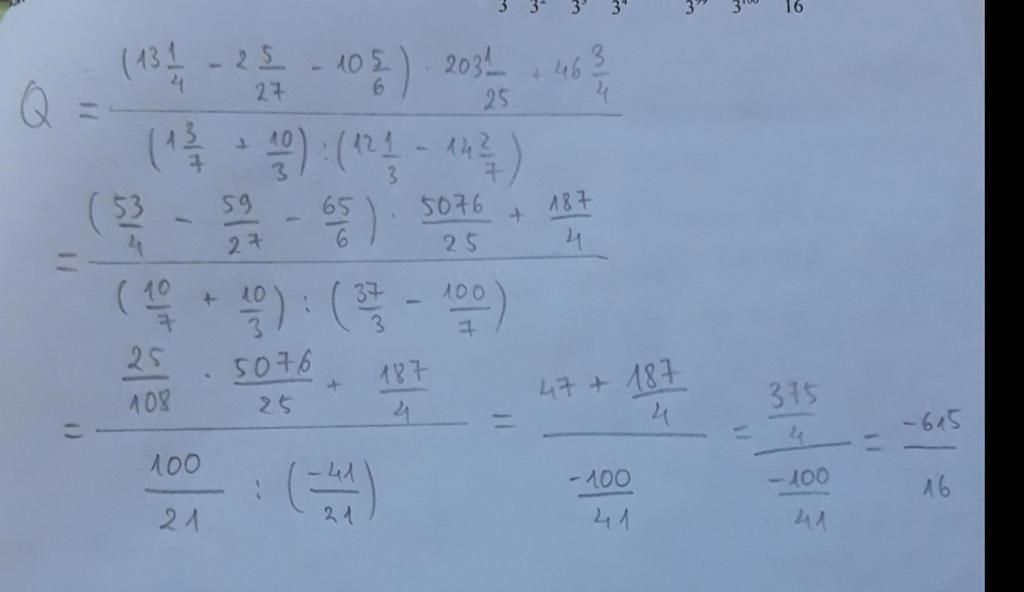 3 3² 3³ 3⁴ 3⁹⁹ 3¹⁰⁰ 16
Q = ((13 1/4 - 2 5/27 - 10 5/6) · 203 1/25 + 46 3/4) / ((1 3/7 + 10/3) : (12 1/3 - 14 2/7))
= ((53/4 - 59/27 - 65/6) · 5076/25 + 187/4) / ((10/7 + 10/3) : (37/3 - 100/7))
= (25/108 · 5076/25 + 187/4) / (100/21 : (-41/21)) = (47 + 187/4) / (-100/41) = (375/4) / (-100/41) = -615/16